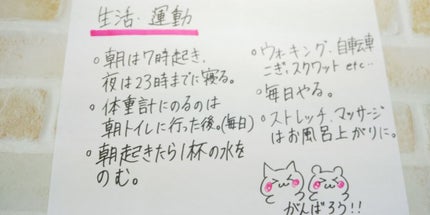 生活・運動
○朝は7時起き、
夜は23時までに寝る。
○体重計にのるのは
朝トイレに行った後。(毎日)
○朝起きたら1杯の水を
のむ。
○ウォーキング、自転車
こぎ、スクワット etc…
○毎日やる。
○ストレッチ、マッサージ
はお風呂上がりに。
がんばろう!!